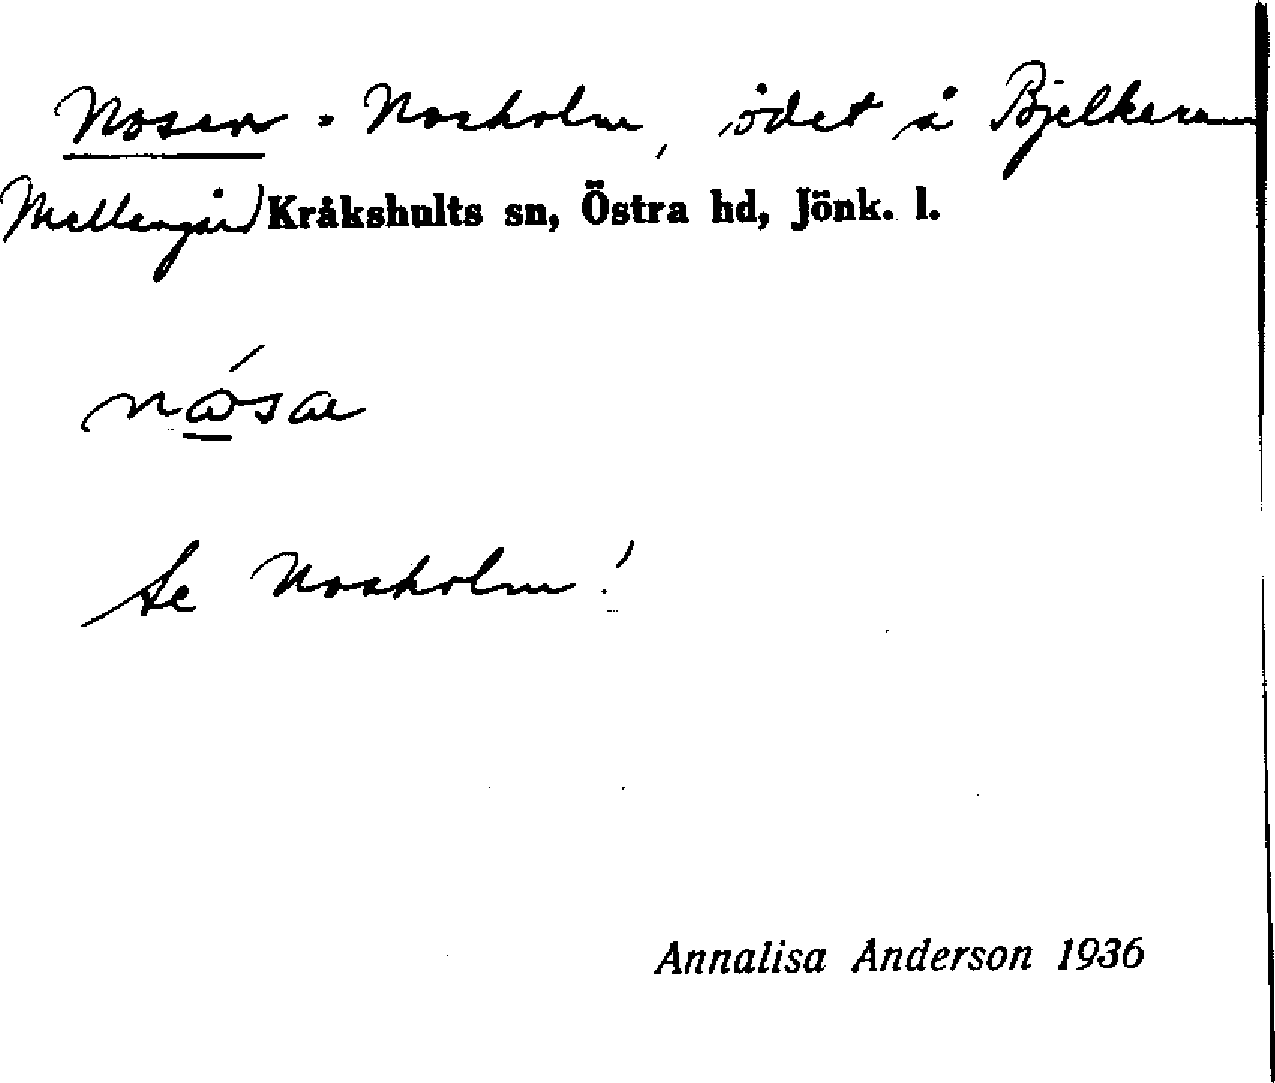 Nosen = Nosholm, ödet å Bjelkerum
Mellangård Kråkshults sn, Östra hd, Jönk. l.
Se Nosholm!
Annalisa Anderson 1936